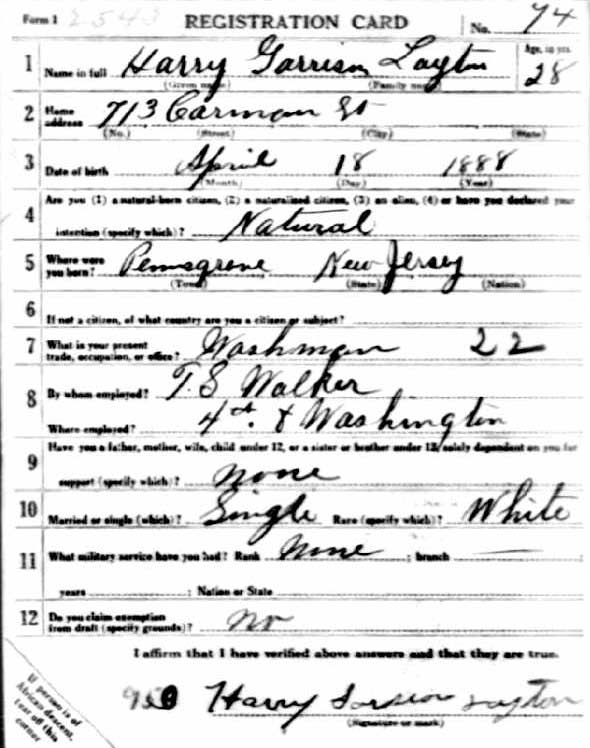 Form 1 2543 REGISTRATION CARD No. 74
1 Name in full Harry Garrison Layton Age, in yrs. 28
(Given name) (Family name)
2 Home address 713 Carman St
(No.) (Street) (City) (State)
3 Date of birth April 18 1888
(Month) (Day) (Year)
4 Are you (1) a natural-born citizen, (2) a naturalized citizen, (3) an alien, (4) or have you declared your
intention (specify which)? Natural
5 Where were you born? Pennsgrove New Jersey
(Town) (State) (Nation)
6 If not a citizen, of what country are you a citizen or subject?
7 What is your present trade, occupation, or office? Washman 22
8 By whom employed? T. S Walker
Where employed? 4th & Washington
9 Have you a father, mother, wife, child under 12, or a sister or brother under 12, solely dependent on you for
support (specify which)? None
10 Married or single (which)? Single Race (specify which)? White
11 What military service have you had? Rank None ; branch
years ; Nation or State
12 Do you claim exemption from draft (specify grounds)? No
I affirm that I have verified above answers and that they are true.
Harry Garrison Layton
(Signature or mark)
If person is of
African descent,
tear off this
corner